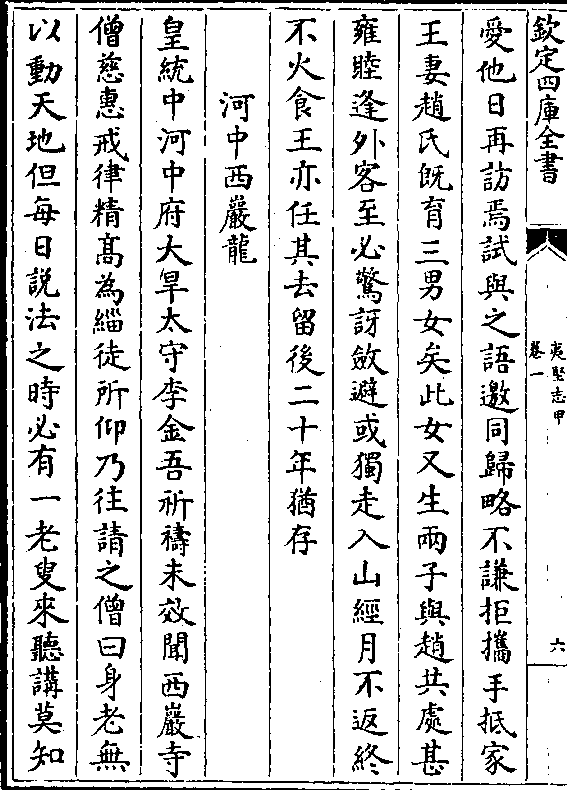 欽定四庫全書
夷堅志甲
卷一
六
愛他日再訪焉試與之語邀同歸略不謙拒攜手抵家
王妻趙氏旣育三男女矣此女又生兩子與趙共處甚
雍睦逢外客至必驚訝斂避或獨走入山經月不返終
不火食王亦任其去留後二十年猶存
河中西巖龍
皇統中河中府大旱太守李金吾祈禱未效聞西巖寺
僧慈惠戒律精髙為緇徒所仰乃往請之僧曰身老無
以動天地但每日説法之時必有一老叟來聽講莫知